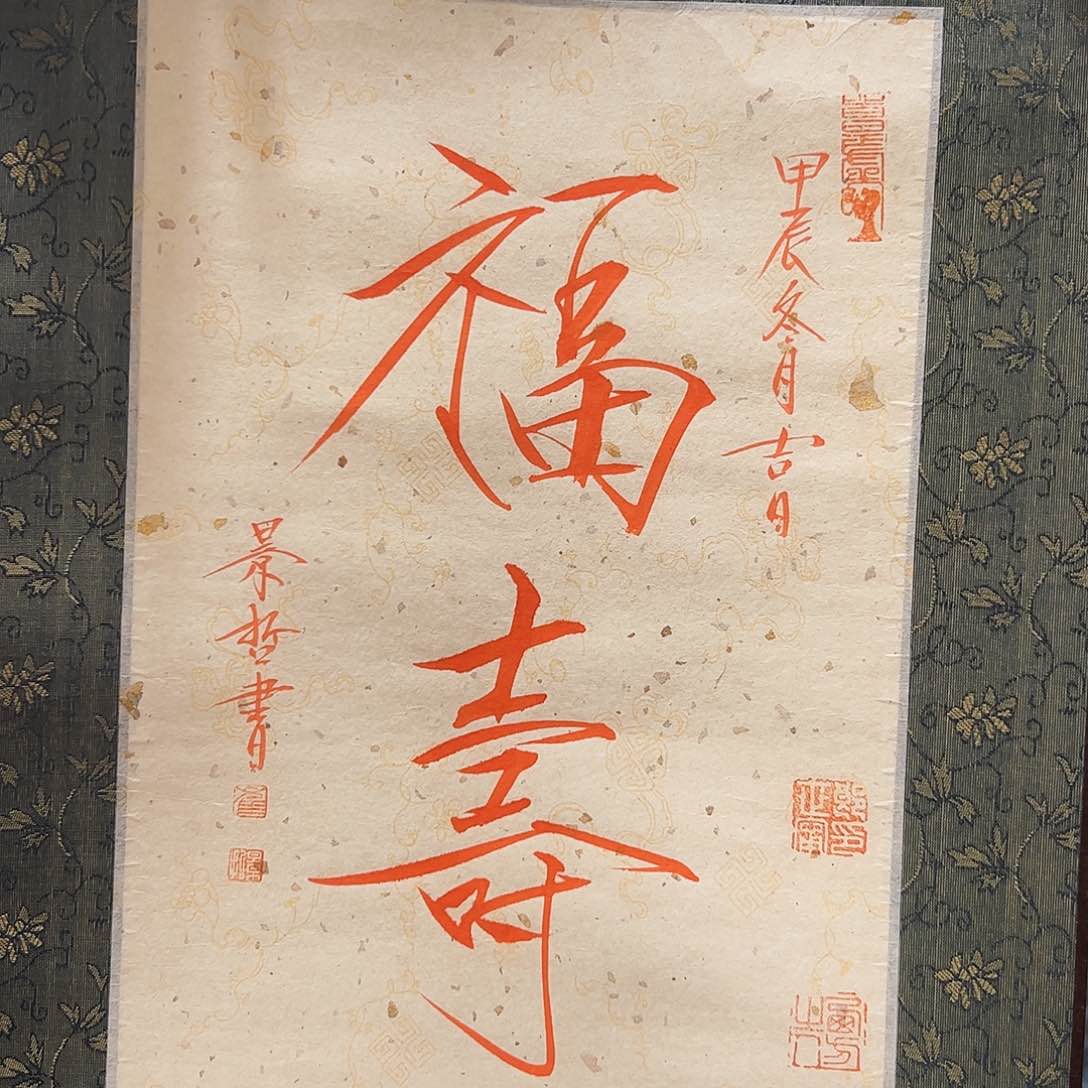 甲辰冬月吉日
福壽
景哲書